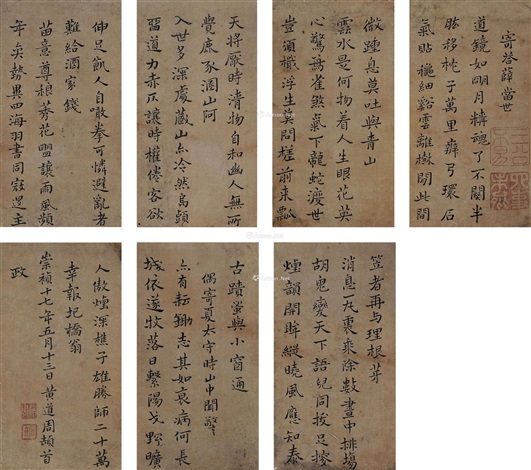 寄答薛當世
道鏡如明月精魂了不關半
胎移枕子萬里辨弓環石
氣貼穐細谿雲離樹閒此間
微踵息莫吐與青山
雲水是何物着人生眼花英
心驚雀煞氣下龍蛇渡世
豈須懺浮生莫問槎前来瓢
天將厭時清物自和幽人無所
覺鹿豕澗山阿
入世多深處藏山点冷然烏頭
習道力赤仄讓時權倦客欲
伸足飢人自噉拳可憐避亂者
難給酒家錢
苗意尊稂莠花盟讓雨風頻
年矣異四海羽書同還主
笠者再与理根芽
消息一丸裏乘除數畫中排場
胡鬼變天下語兒同拔足
煙韻開眸縱曉風應知泰
古蹟蛩與小窗通
偶寄夏太守時山中聞警
点有耘鋤志其如衰病何長
城依遂牧落日繫陽戈野曠
人傲煙深樵子雄勝師二十萬
幸報圯橋翁
崇禎十七年五月十三日黃道周頓首
政